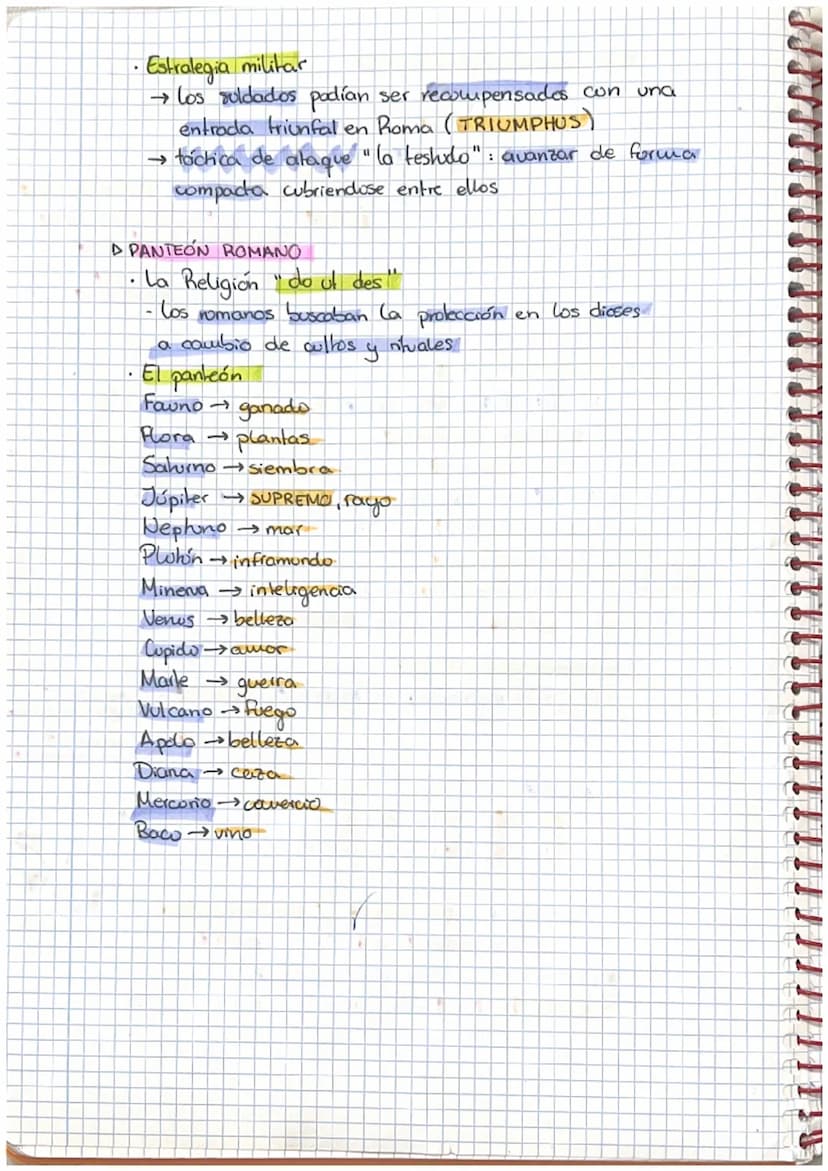 · Estrategia militar
→ los soldados podían ser recompensados con una
entrada triunfal en Roma (TRIUMPHUS)
→ táctica de ataque "la testudo": avanzar de forma
compacta cubriendose entre ellos
▷ PANTEÓN ROMANO
· La Religión "do ut des"
- los romanos buscaban la protección en los dioses
a cambio de cultos y rituales
· El panteón
Fauno → ganado
Flora → plantas
Saturno → siembra
Júpiter → SUPREMO, rayo
Neptuno → mar
Plutón → inframundo
Minerva → inteligencia
Venus → belleza
Cupido → amor
Marte → guerra
Vulcano → fuego
Apolo → belleza
Diana → caza
Mercurio → comercio
Baco → vino